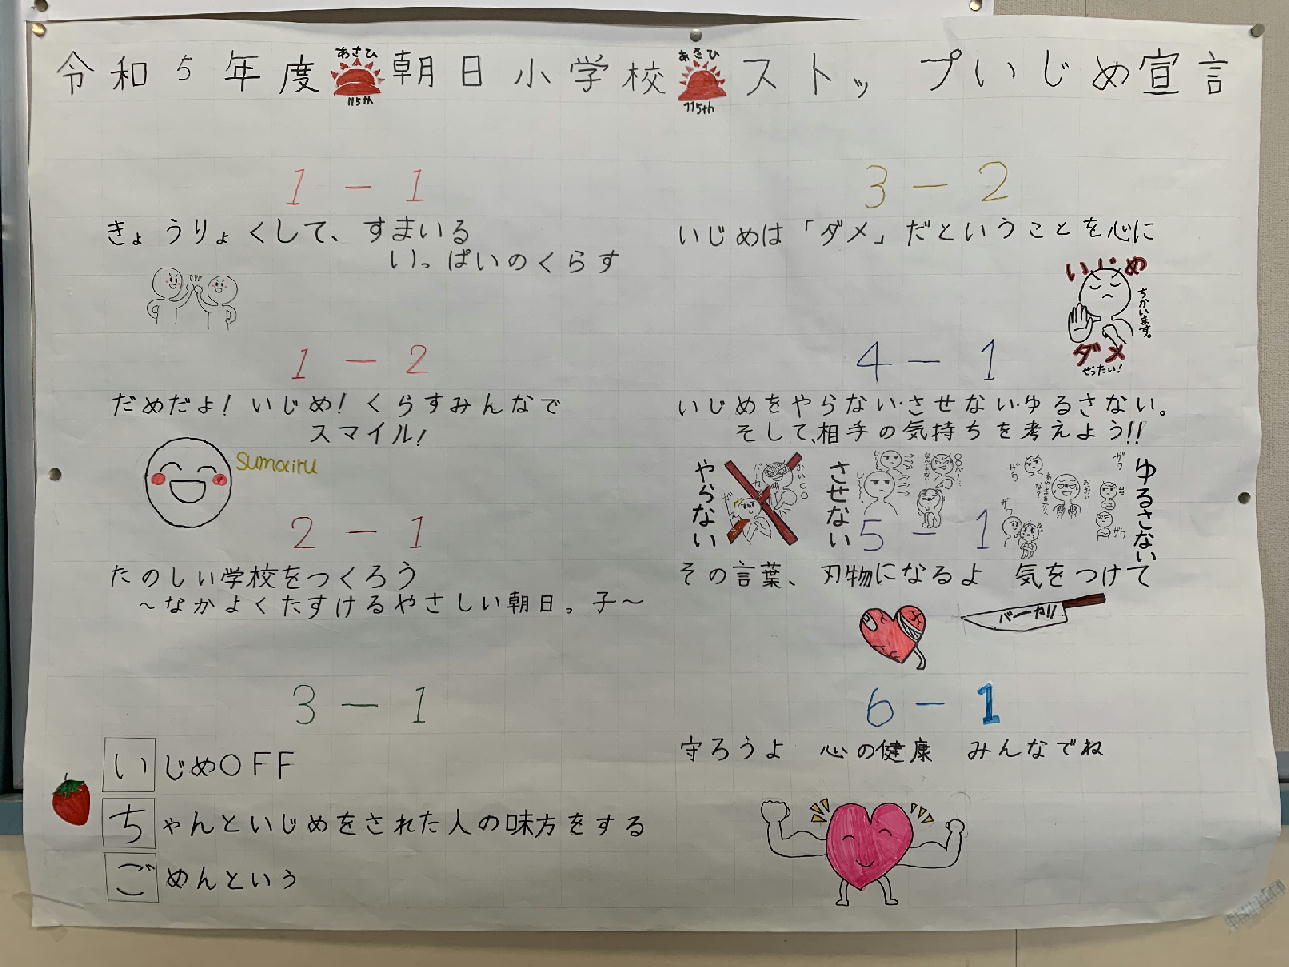 令和5年度 あさひ 115th 朝日小学校 あさひ 115th ストップいじめ宣言
1－1
きょうりょくして、すまいる
いっぱいのくらす
1－2
だめだよ！いじめ！くらすみんなで
スマイル！
sumairu
2－1
たのしい学校をつくろう
～なかよくたすけるやさしい朝日っ子～
3－1
いじめOFF
ちゃんといじめをされた人の味方をする
ごめんという
3－2
いじめは「ダメ」だということを心に
いじめ
ちかいます。
ダメ
ぜったい！
4－1
いじめをやらない・させない・ゆるさない。
そして、相手の気持ちを考えよう!!
やらない
させない
ゆるさない
5－1
その言葉、刃物になるよ 気をつけて
バーカ!!
6－1
守ろうよ 心の健康 みんなでね